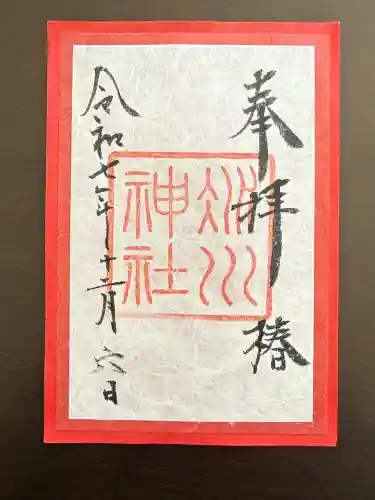 奉拝 椿
氷川
神社
令和七年十二月六日